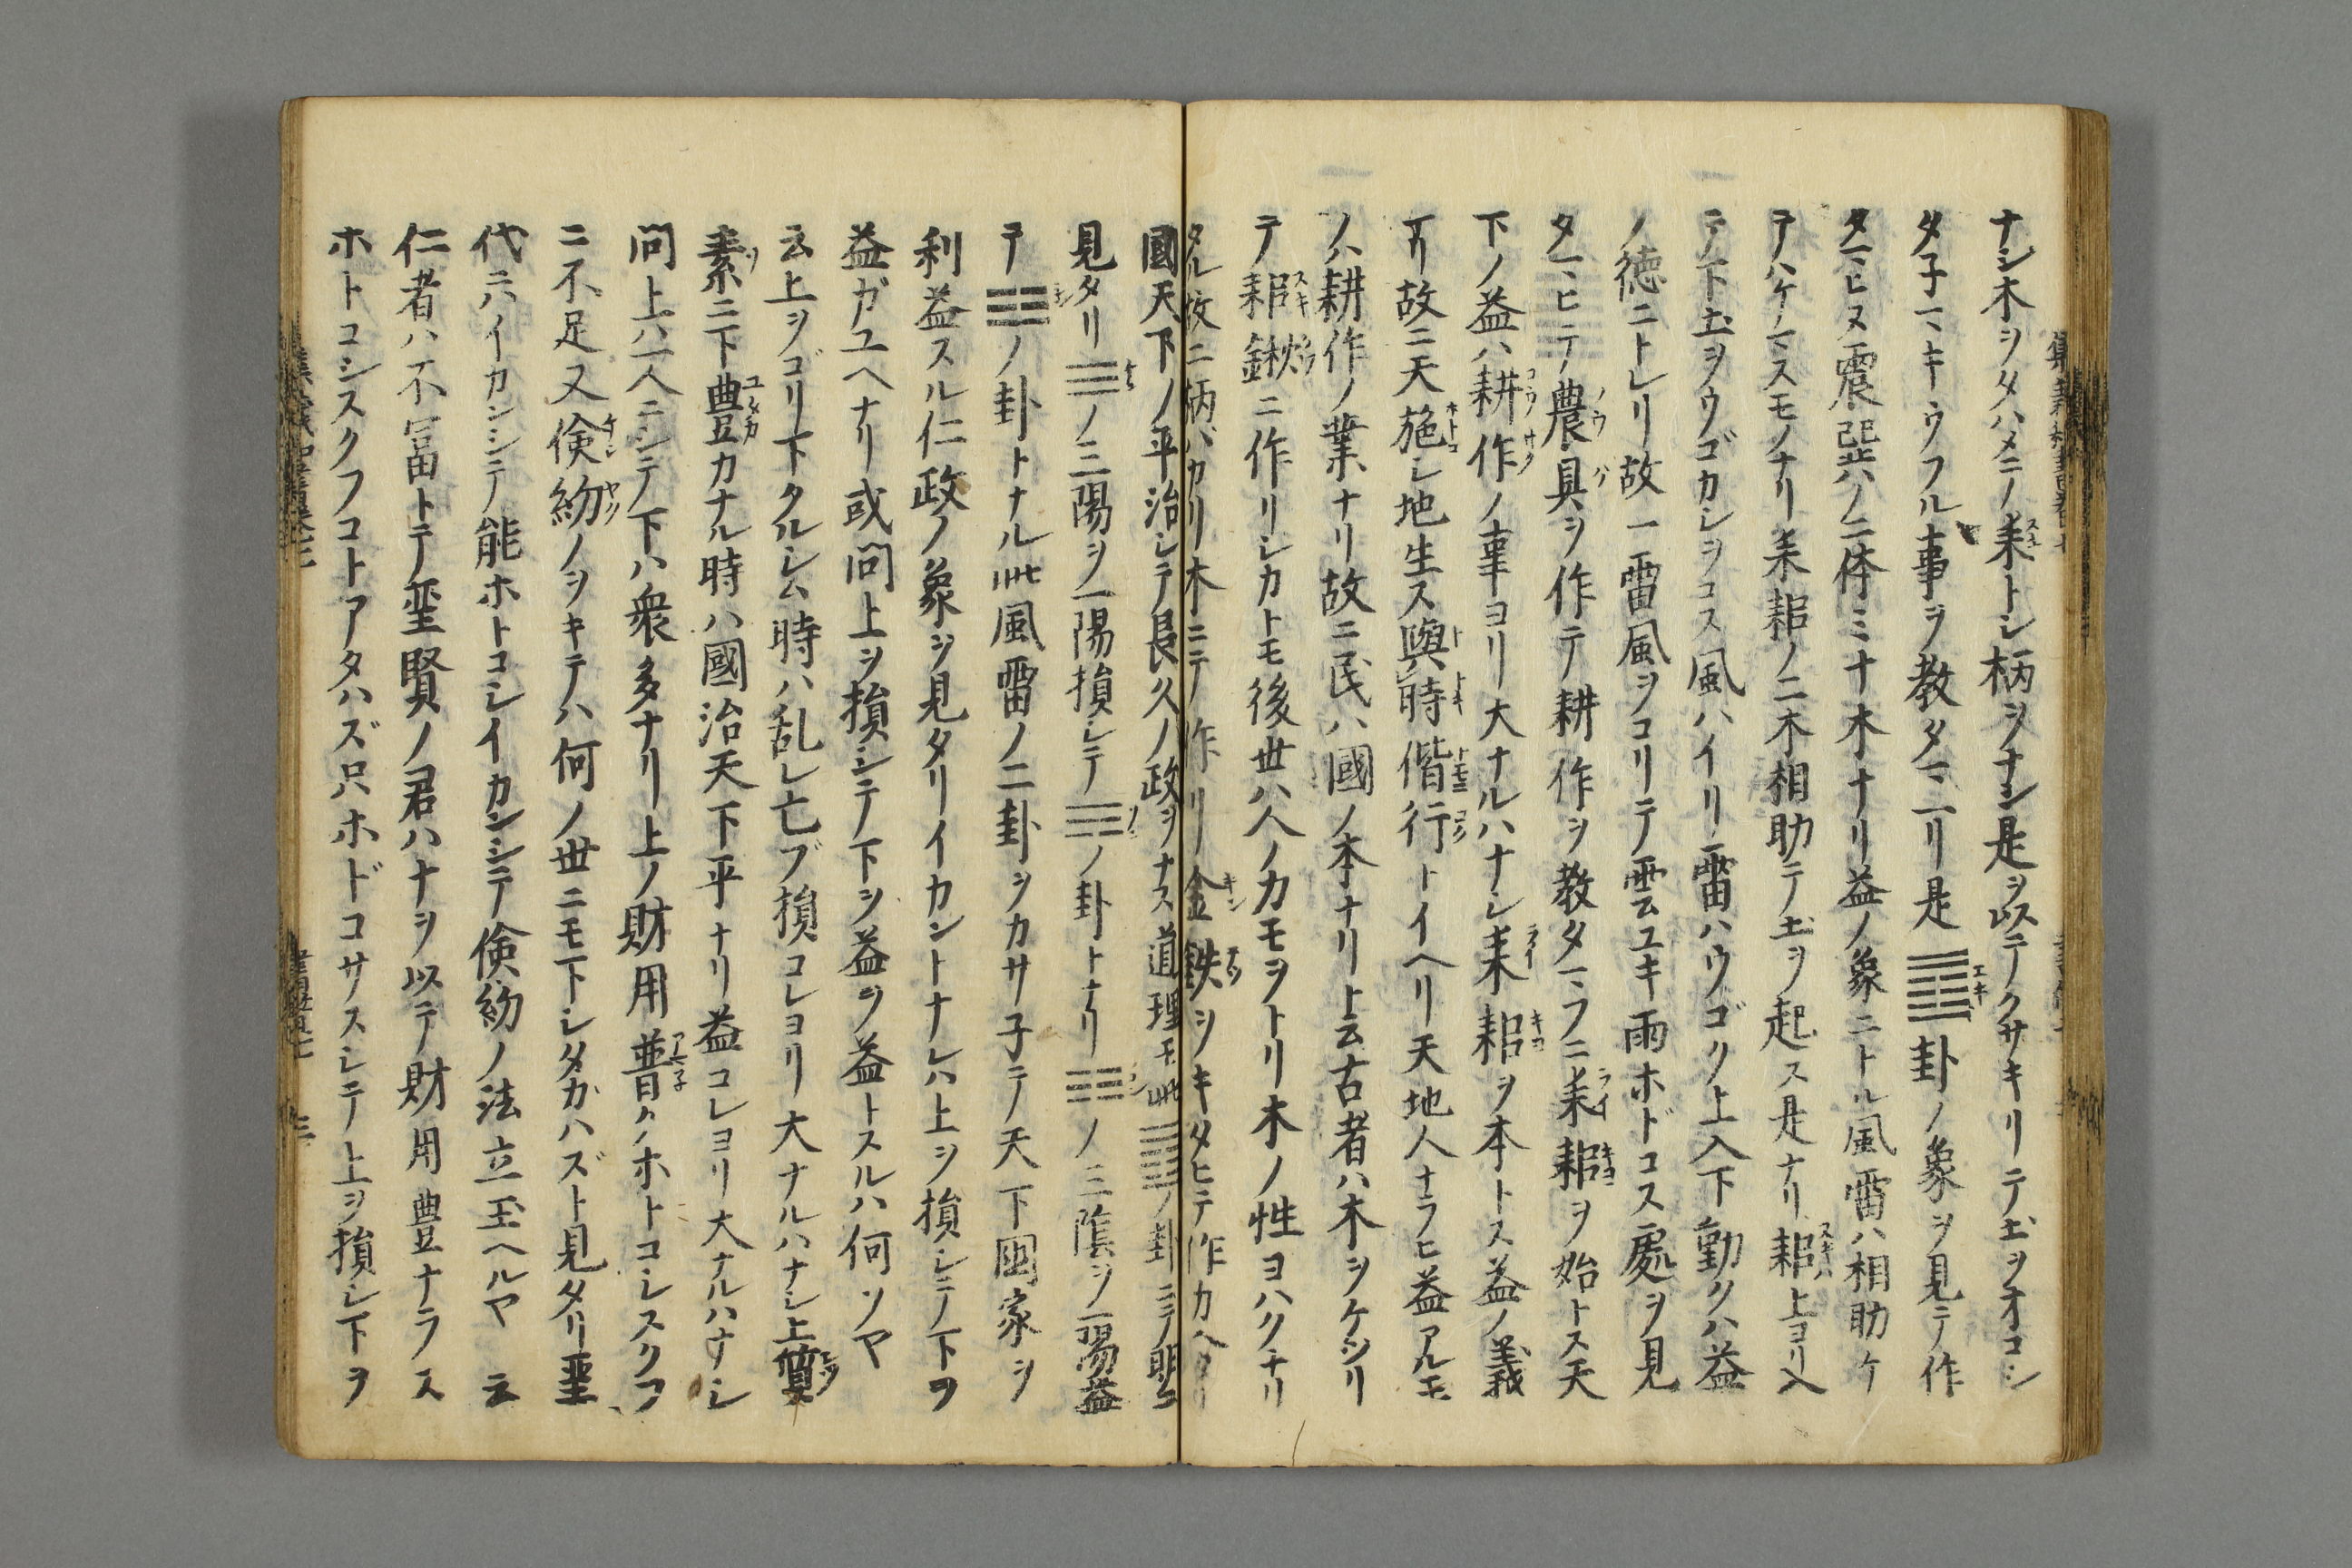 ナシ木ヲタハメテ耒トシ柄ヲナシ是ヲ以テクサキリテ土ヲオコシ
タ子マキウフル事ヲ教タマヘリ是䷩卦ノ象ヲ見テ作
タマヒヌ震巽ノ二体ミナ木ナリ益ノ象ニトル風雷ハ相助ケ
テハケマスモノナリ耒耜ノ二木相助テ土ヲ起ス是ナリ耜ハ上ヨリ入
テ下土ヲウゴカシヲコス風ハイリ雷ハウゴク上入下動クハ益
ノ徳ニトレリ故ニ雷風ヲコリテ雲ユキ雨ホドコス處ヲ見
タマヒテ農具ヲ作テ耕作ヲ教タマフニ耒耜ヲ始トス天
下ノ益ハ耕作ノ事ヨリ大ナルハナシ耒耜ヲ本トス益ノ義
ナリ故ニ天施シ地生ス與時偕行トイヘリ天地人ナラヒ益アルモ
ノハ耕作ノ業ナリ故ニ民ハ國ノ本ナリト云古者ハ木ヲケヅリ
テ耜鍬ニ作リシカトモ後世ハ人ノ力モヲトリ木ノ性ヨハクナリ
タル故ニ柄バカリ木ニテ作リ金鉄ヲキタヒテ作カヘタリ
國天下ノ平治シテ長久ノ政ヲナス道理モ此䷩ノ卦ニテ明ニ
見タリ☰ノ三陽ヲ一陽損シテ☴ノ卦トナリ☷ノ三陰ヲ一陽益
テ☳ノ卦トナル此風雷ノ二卦ヲカサ子テ天下国家ヲ
利益スル仁政ノ象ヲ見タリイカントナレハ上ヲ損シテ下ヲ
益ガユヘナリ或問上ヲ損シテ下ヲ益ヲ益トスルハ何ソヤ
云上ヲゴリ下タルシム時ハ乱レ亡ブ損コレヨリ大ナルハナシ上質
素ニ下豊カナル時ハ國治天下平ナリ益コレヨリ大ナルハナシ
問上ハ一人ニシテ下ハ衆多ナリ上ノ財用普クホトコシスクフ
ニ不足又倹約ノヲキテハ何ノ世ニモ下シタガハズト見タリ聖
代ニハイカンシテ能ホトコシイカンシテ倹約ノ法立玉ヘルヤ 云
仁者ハ不富トテ聖賢ノ君ハナヲ以テ財用豊ナラス
ホトコシスクフコトアタハズ只ホドコサスシテ上ヲ損シ下ヲ